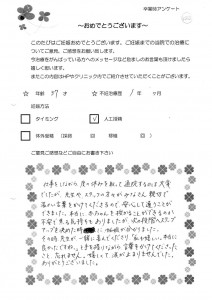 卒業時アンケート
～おめでとうございます～
このたびはご妊娠おめでとうございます。ご妊娠までの当院での治療に
ついてご質問、ご感想をお願い致します。
今治療をがんばっている方へのメッセージなど治療しのお言葉を頂けましたら
嬉しく思います。
またこの内容はHPやクリニック内でご紹介させていただくことがございます。
☆ 年齢 37 才 ☆不妊治療歴 1 年 ヶ月
妊娠方法
タイミング ✓ 人工授精
体外受精 （採卵 回 移植 ）
ご意見ご感想などご自由にお書き下さい
仕事をしながら、度々休みを取って通院するのは大変
でしたが、先生や、スタッフの方がみなさん、親切で
温かい言葉をかけてくださるので、安心して通うことが
できました。本当に、赤ちゃんを授かることができるのか
不安で焦る気持ちもありましたが、次の段階へステップ
アップを決めた時に妊娠が分かりました。
その時、先生が一緒に喜んでくださり、「私も嬉しい。本当に
良かったですね。」と手を握りながら、言葉をかけてくださった
こと、忘れません。嬉しくて、涙が止まりませんでした。
ありがとうございました。